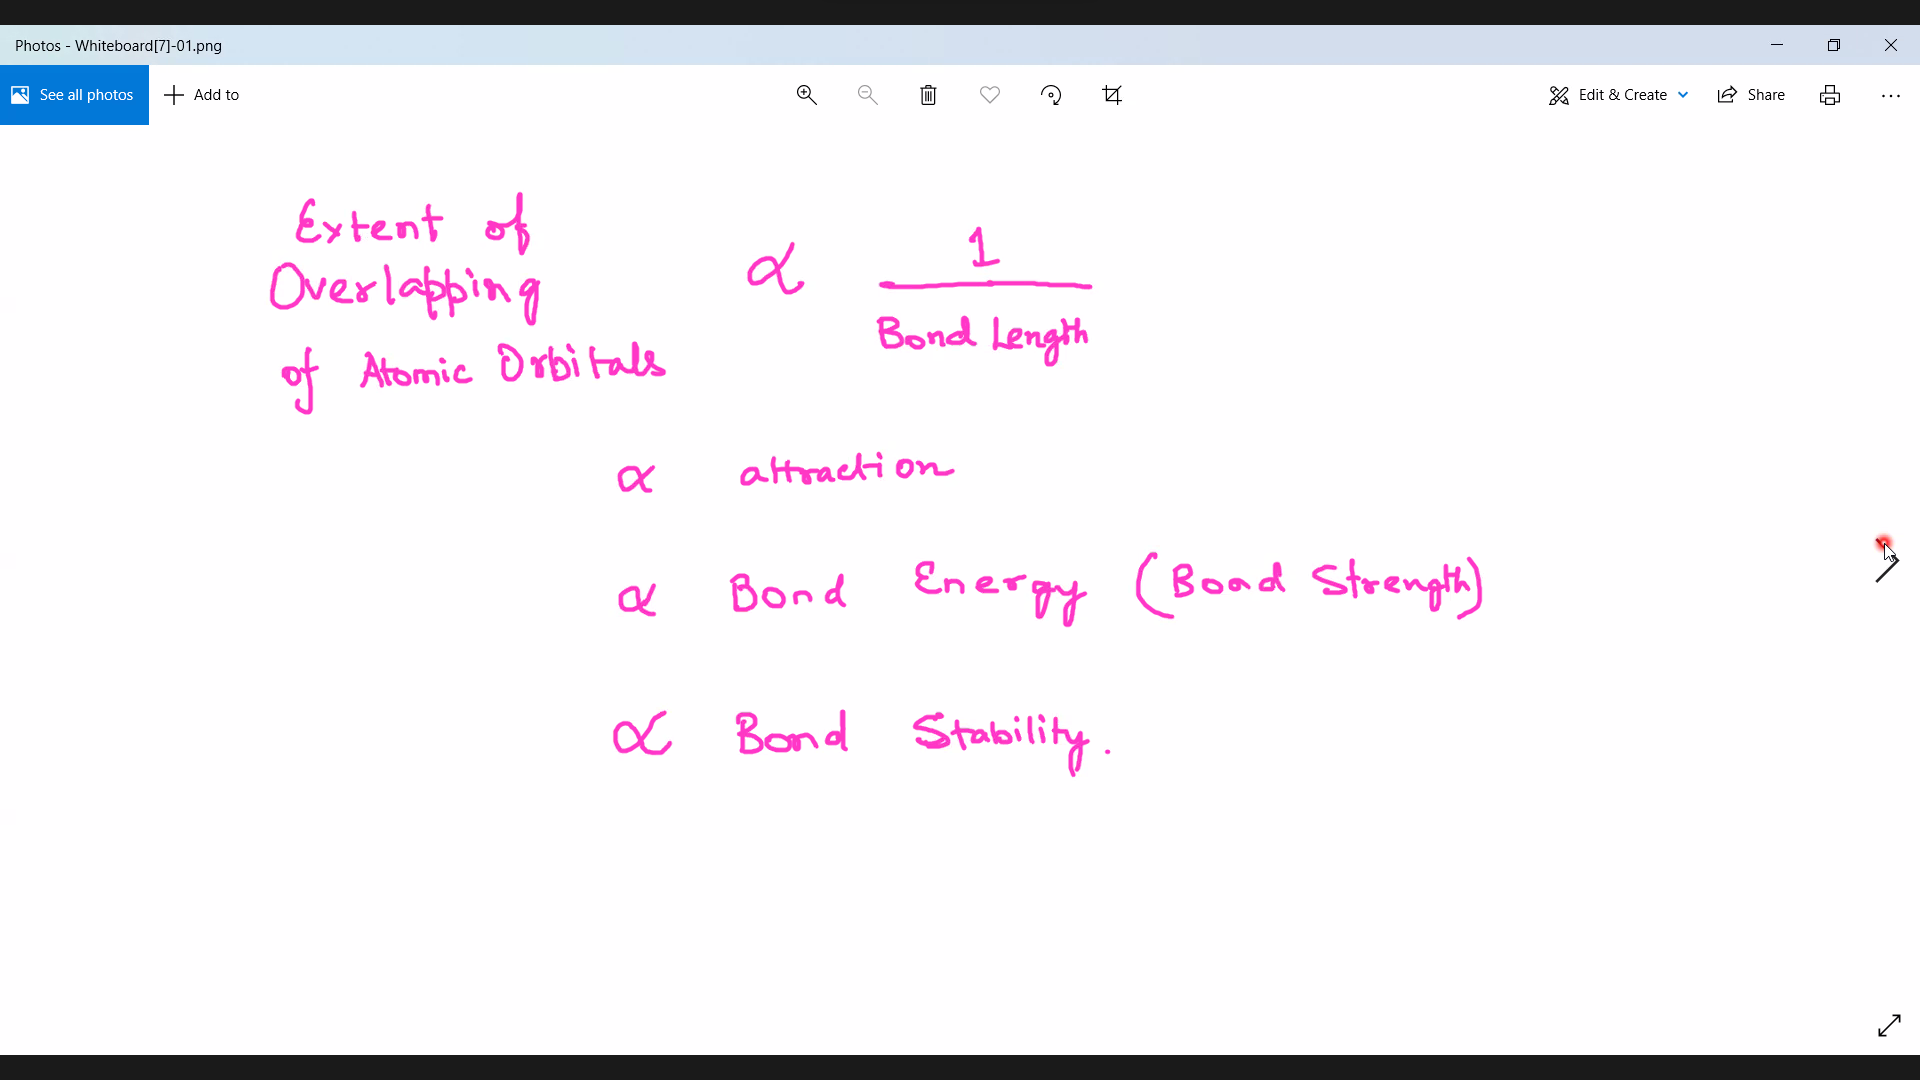 Photos - Whiteboard[7]-01.png
See all photos
Add to
Edit & Create
Share
Extent of
Overlapping
of Atomic Orbitals
∝ 1
Bond Length
∝ attraction
∝ Bond Energy (Bond Strength)
∝ Bond Stability.